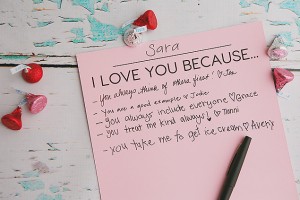 Sara
I LOVE YOU BECAUSE...
- You always think of others first! ♡ Joe
- You are a good example ♡ Jadie
- you always include everyone ♡ Grace
- you treat me kind always! ♡
- you take me to get ice cream ♡ Avery